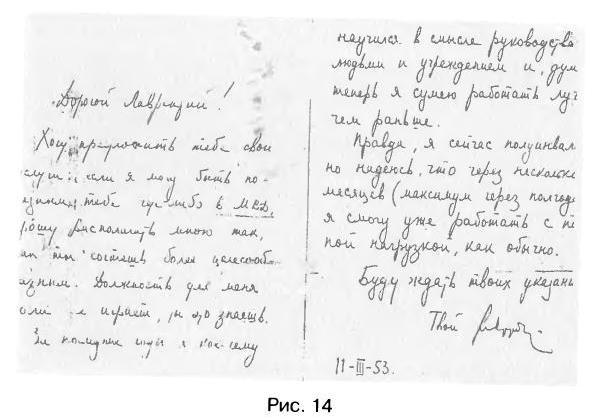 Дорогой Лаврентий!
Хочу предложить тебе свои
услуги: если я могу быть по-
тебе где-либо в МВД,
прошу располагать мною так,
ты более целесооб-
разным. Должность для меня
роли не играет, ты это знаешь.
За последнее я кое-чему
научился в смысле руководства
людьми и учреждением и, дум
теперь я сумею работать луч
чем раньше.
Правда, я сейчас полуинвал
но надеюсь, что через несколько
месяцев (максимум через полгода
я смогу уже работать с по
ной нагрузкой, как обычно.
Буду ждать твоих указани
Твой
11-III-53.
Рис. 14